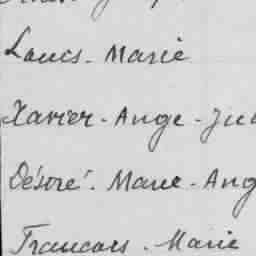 Louis - Marie
Xavier - Ange - Ju
Désiré - Marie - Ang
Francois - Marie